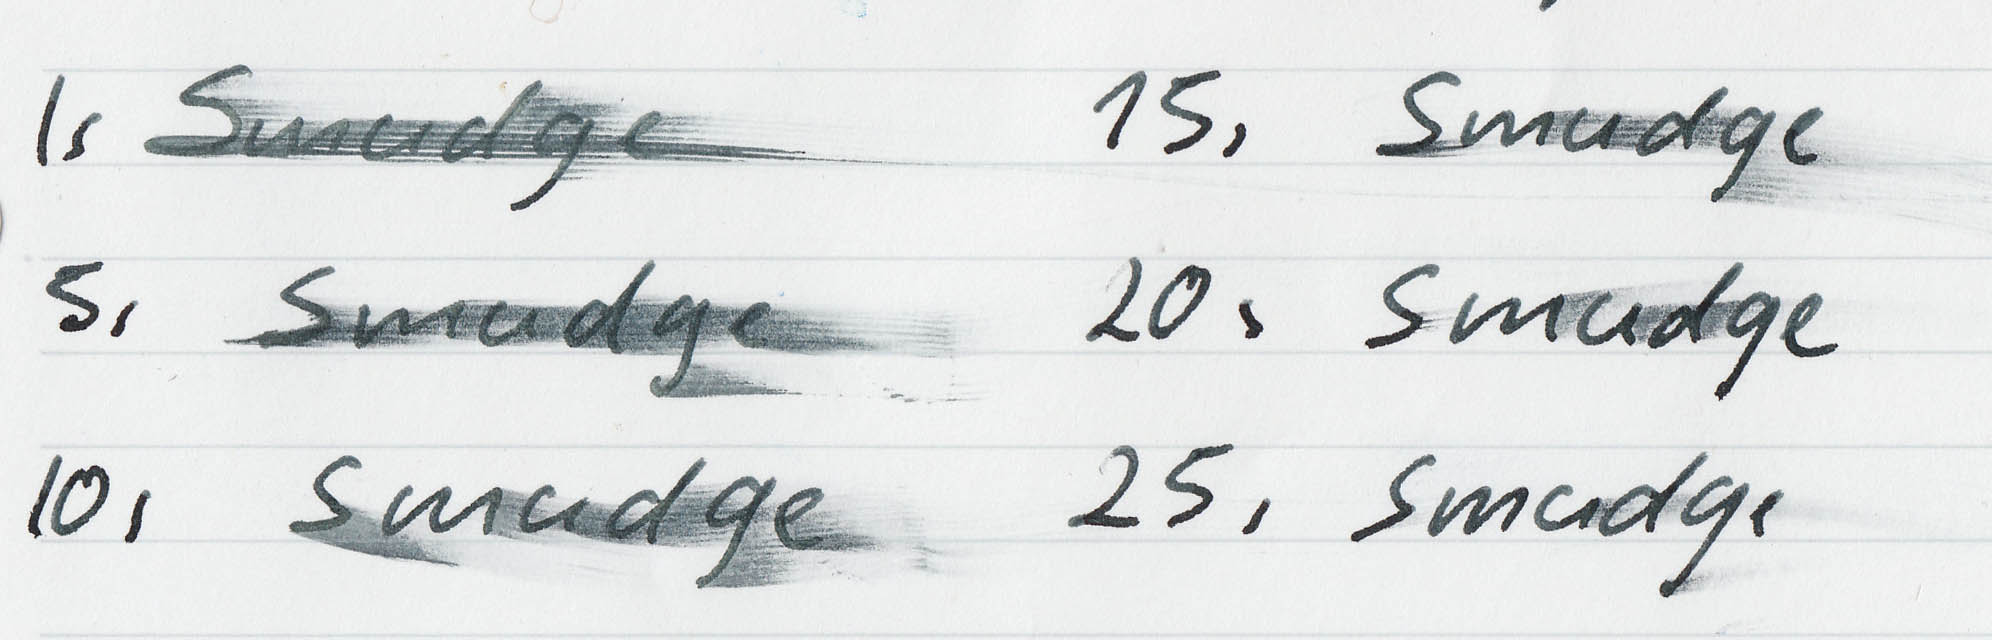 1s Smudge
5s Smudge
10s Smudge
15s Smudge
20s Smudge
25s Smudge